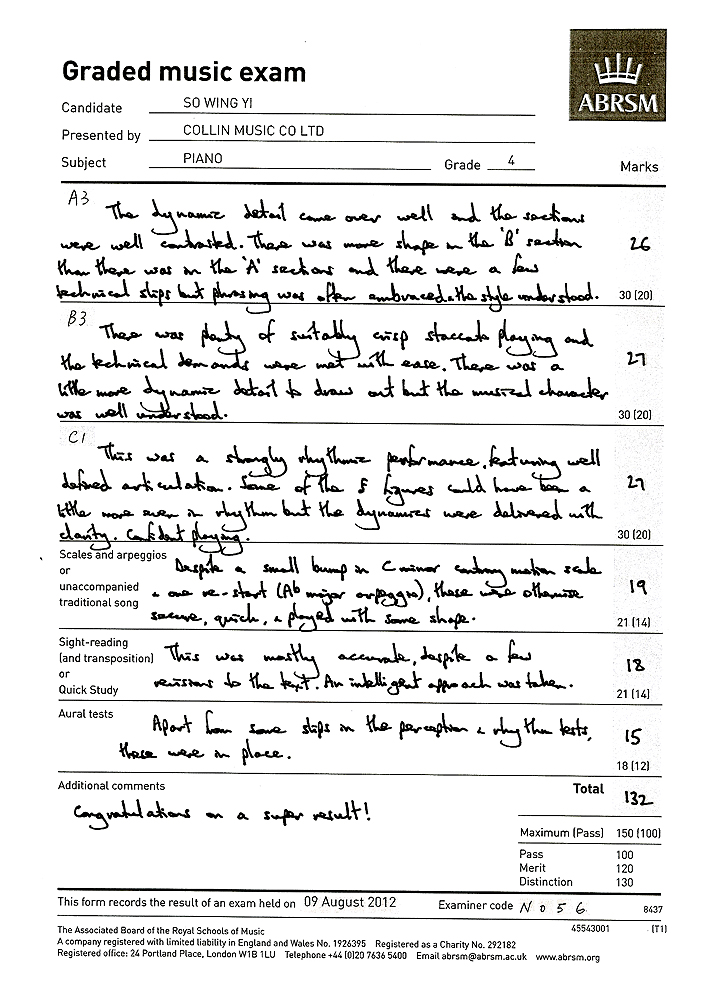 Graded music exam
ABRSM
Candidate SO WING YI
Presented by COLLIN MUSIC CO LTD
Subject PIANO Grade 4 Marks
A3 The dynamic detail came over well and the sections
were well contrasted. There was more shape in the 'B' section
than there was in the 'A' sections and there were a few
technical slips but phrasing was often embraced & the style understood.
26
30 (20)
B3 There was plenty of suitably crisp staccato playing and
the technical demands were met with ease. There was a
little more dynamic detail to draw out but the musical character
was well understood.
27
30 (20)
C1 This was a strongly rhythmic performance, featuring well
defined articulation. Some of the figures could have been a
little more even in rhythm but the dynamics were delivered with
clarity. Confident playing.
27
30 (20)
Scales and arpeggios
or
unaccompanied
traditional song
Despite a small bump in C minor contrary motion scale
& one re-start (Ab major arpeggio), these were otherwise
secure, quick, & played with some shape.
19
21 (14)
Sight-reading
(and transposition)
or
Quick Study
This was mostly accurate, despite a few
revisions to the text. An intelligent approach was taken.
18
21 (14)
Aural tests
Apart from some slips in the perception & rhythm tests,
these were in place.
15
18 (12)
Additional comments
Congratulations on a super result!
Total 132
Maximum (Pass) 150 (100)
Pass 100
Merit 120
Distinction 130
This form records the result of an exam held on 09 August 2012 Examiner code N056 8437
The Associated Board of the Royal Schools of Music 45543001 (T1)
A company registered with limited liability in England and Wales No. 1926395 Registered as a Charity No. 292182
Registered office: 24 Portland Place, London W1B 1LU Telephone +44 (0)20 7636 5400 Email abrsm@abrsm.ac.uk www.abrsm.org